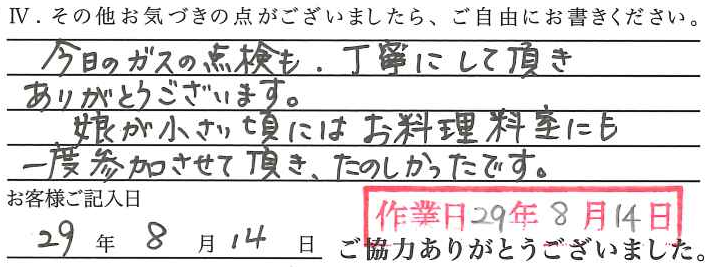 Ⅳ．その他お気づきの点がございましたら、ご自由にお書きください。
今日のガスの点検も、丁寧にして頂き
ありがとうございます。
娘が小さい頃にはお料理料室にも
一度参加させて頂き、たのしかったです。
お客様ご記入日
29 年 8 月 14 日
作業日29年 8月14日
ご協力ありがとうございました。